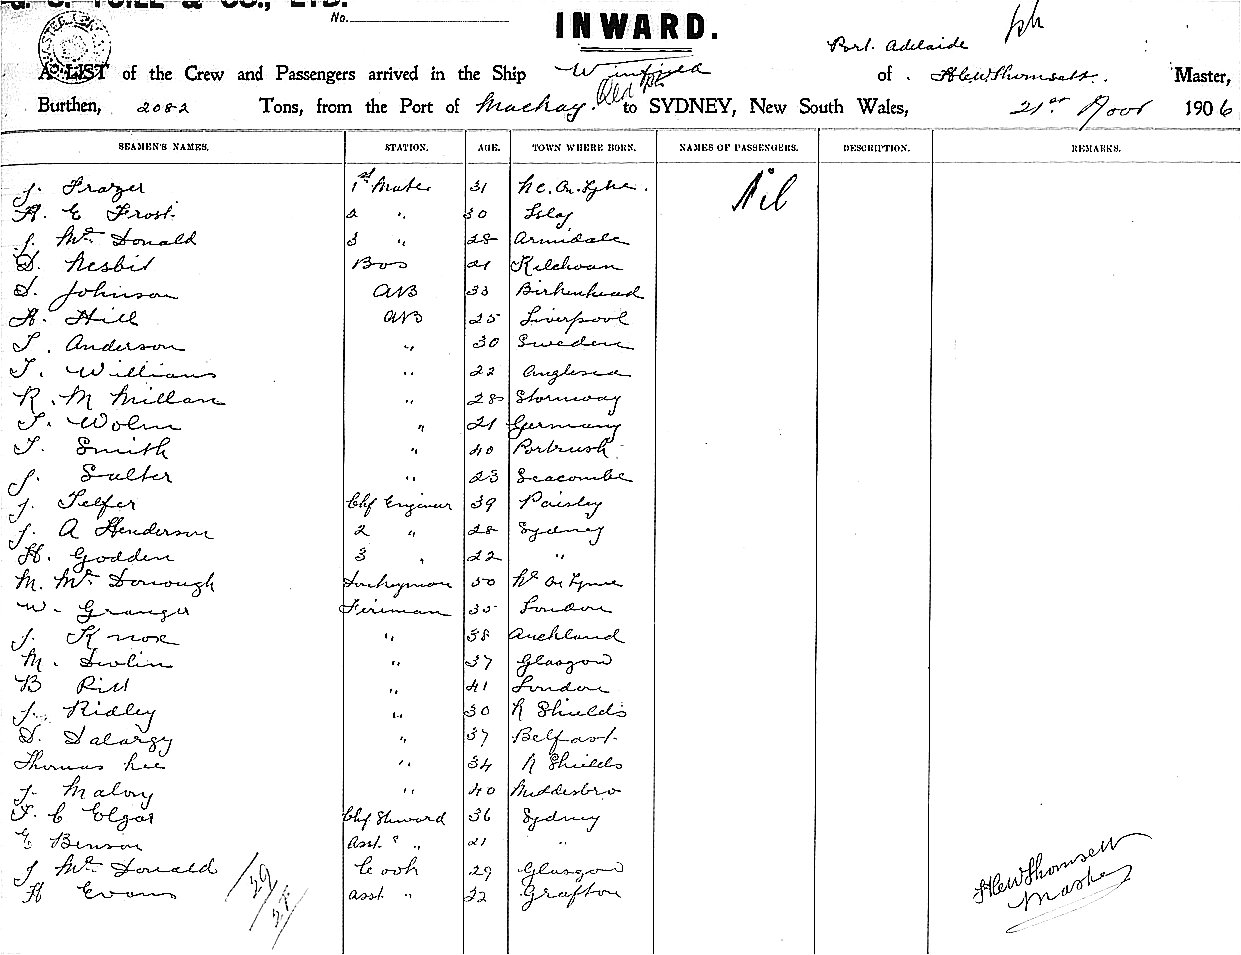 & CO., LTD.
No.
INWARD.
Port. Adelaide
A LIST of the Crew and Passengers arrived in the Ship Winfield of . HEWThomsett. Master,
Burthen, 2082 Tons, from the Port of Mackay to SYDNEY, New South Wales, 21st Novr 1906
SEAMEN'S NAMES. STATION. AGE. TOWN WHERE BORN. NAMES OF PASSENGERS. DESCRIPTION. REMARKS.
J. Frazer 1st Mate 31 Nil
A. E Frost 2 " 30 Islay
J. Mc Donald 3 " 28 Armidale
D. Nesbit Bos 21 Kilchoan
D. Johnson AB 33 Birkenhead
A. Hill AB 25 Liverpool
T. Anderson " 30 Sweden
T. Williams " 22 Anglesea
R. M Millan " 28 Stornway
T. Wolm " 21 Germany
T. Smith " 40 Portrush
J. Salter " 23 Seacombe
J. Telfer Chf Engineer 39 Paisley
J. A Henderson 2 " 28 Sydney
H. Godden 3 " 22 "
M. Mc Donough Donkeyman 50 N. On Tyne
W. Granger Fireman 35 London
J. Knox " 38 Auckland
M. Devlin " 37 Glasgow
B " 41 London
J. Ridley " 30 N Shields
D. Dalargy " 37 Belfast
Thomas Lee " 34 N Shields
J. Malory " 40 Middesbro
F. C Elgar Chf Steward 36 Sydney
E Benson Asst " " 21 "
J Mc Donald Cook 29 Glasgow
H Evans Asst " 22 Grafton
29
HEWThomsett
Master